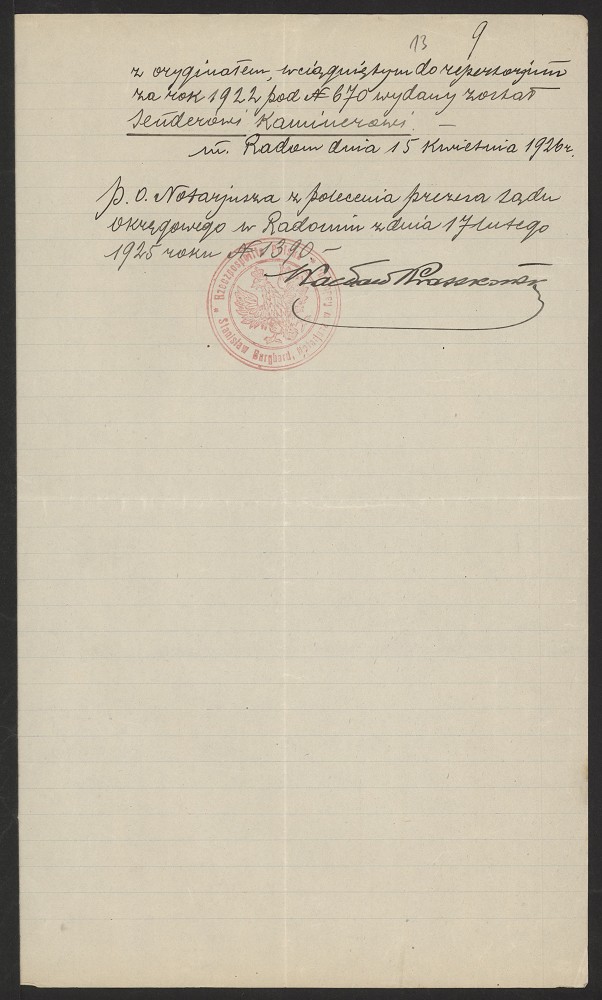 13 9
z oryginałem, wciągniętym do repertorjum
za rok 1922 pod № 670 wydany został
Senderowi Kaminerowi. —
m. Radom dnia 15 Kwietnia 1926 r.
p. o. Notarjusza z polecenia prezesa Sądu
Okręgowego w Radomiu z dnia 17 lutego
1925 roku № 1390 —
Wacław
Rzeczpospolita
Stanisław Burghard,